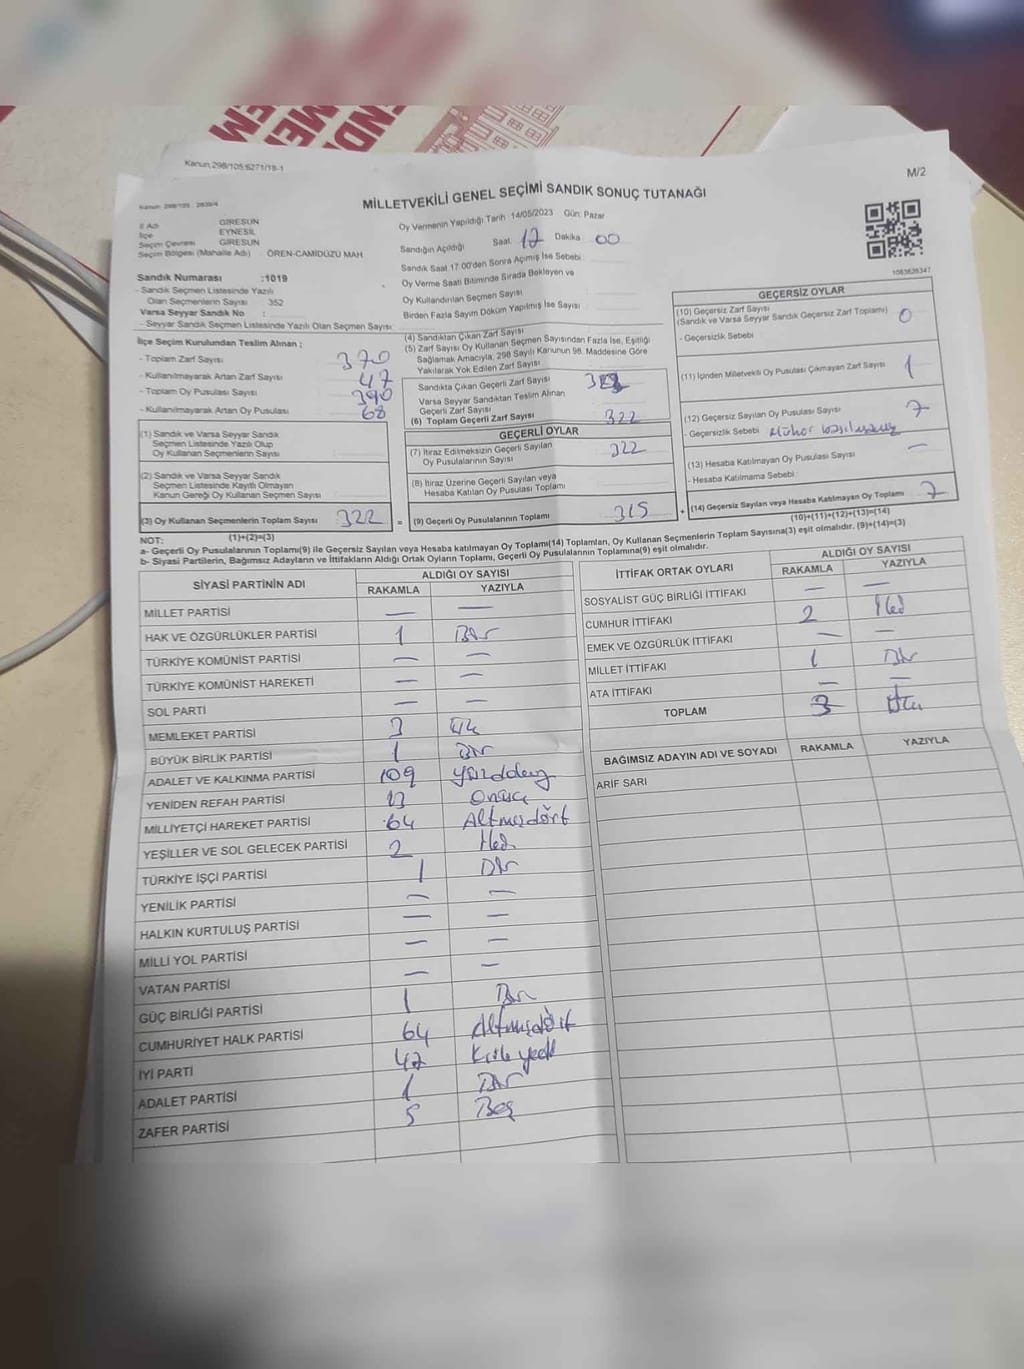 ENDİ
MEM
EM
Kanun:298/105:6271/18-1
M/2
Kanun: 298/105 : 2839/4
MİLLETVEKİLİ GENEL SEÇİMİ SANDIK SONUÇ TUTANAĞI
İl Adı GİRESUN
İlçe EYNESİL
Seçim Çevresi GİRESUN
Seçim Bölgesi (Mahalle Adı) : ÖREN-CAMİDÜZÜ MAH
Sandık Numarası :1019
- Sandık Seçmen Listesinde Yazılı
Olan Seçmenlerin Sayısı : 352
Varsa Seyyar Sandık No :
- Seyyar Sandık Seçmen Listesinde Yazılı Olan Seçmen Sayısı :
Oy Vermenin Yapıldığı Tarih :14/05/2023 Gün: Pazar
Sandığın Açıldığı Saat: 17 Dakika : 00
Sandık Saat 17:00'den Sonra Açılmış İse Sebebi :
Oy Verme Saati Bitiminde Sırada Bekleyen ve
Oy Kullandırılan Seçmen Sayısı :
Birden Fazla Sayım Döküm Yapılmış İse Sayısı :
1083628347
İlçe Seçim Kurulundan Teslim Alınan ;
- Toplam Zarf Sayısı : 370
- Kullanılmayarak Artan Zarf Sayısı : 47
- Toplam Oy Pusulası Sayısı : 390
- Kullanılmayarak Artan Oy Pusulası : 68
(1) Sandık ve Varsa Seyyar Sandık
Seçmen Listesinde Yazılı Olup
Oy Kullanan Seçmenlerin Sayısı :
(2) Sandık ve Varsa Seyyar Sandık
Seçmen Listesinde Kayıtlı Olmayan
Kanun Gereği Oy Kullanan Seçmen Sayısı :
(3) Oy Kullanan Seçmenlerin Toplam Sayısı : 322
(1)+(2)=(3)
(4) Sandıktan Çıkan Zarf Sayısı :
(5) Zarf Sayısı Oy Kullanan Seçmen Sayısından Fazla İse, Eşitliği
Sağlamak Amacıyla, 298 Sayılı Kanunun 98. Maddesine Göre
Yakılarak Yok Edilen Zarf Sayısı :
Sandıkta Çıkan Geçerli Zarf Sayısı :
Varsa Seyyar Sandıktan Teslim Alınan
Geçerli Zarf Sayısı :
(6) Toplam Geçerli Zarf Sayısı : 322
GEÇERLİ OYLAR
(7) İtiraz Edilmeksizin Geçerli Sayılan
Oy Pusulalarının Sayısı : 322
(8) İtiraz Üzerine Geçerli Sayılan veya
Hesaba Katılan Oy Pusulası Toplamı :
= (9) Geçerli Oy Pusulalarının Toplamı : 315
GEÇERSİZ OYLAR
(10) Geçersiz Zarf Sayısı
(Sandık ve Varsa Seyyar Sandık Geçersiz Zarf Toplamı) : 0
- Geçersizlik Sebebi :
(11) İçinden Milletvekili Oy Pusulası Çıkmayan Zarf Sayısı : 1
(12) Geçersiz Sayılan Oy Pusulası Sayısı : 7
- Geçersizlik Sebebi :
(13) Hesaba Katılmayan Oy Pusulası Sayısı : —
- Hesaba Katılmama Sebebi :
+ (14) Geçersiz Sayılan veya Hesaba Katılmayan Oy Toplamı : 7
(10)+(11)+(12)+(13)=(14)
NOT:
a- Geçerli Oy Pusulalarının Toplamı(9) ile Geçersiz Sayılan veya Hesaba katılmayan Oy Toplamı(14) Toplamları, Oy Kullanan Seçmenlerin Toplam Sayısına(3) eşit olmalıdır. (9)+(14)=(3)
b- Siyasi Partilerin, Bağımsız Adayların ve İttifakların Aldığı Ortak Oyların Toplamı, Geçerli Oy Pusulalarının Toplamına(9) eşit olmalıdır.
SİYASİ PARTİNİN ADI ALDIĞI OY SAYISI
RAKAMLA YAZIYLA
MİLLET PARTİSİ — —
HAK VE ÖZGÜRLÜKLER PARTİSİ 1 Bir
TÜRKİYE KOMÜNİST PARTİSİ — —
TÜRKİYE KOMÜNİST HAREKETİ — —
SOL PARTİ — —
MEMLEKET PARTİSİ 3
BÜYÜK BİRLİK PARTİSİ 1 Bir
ADALET VE KALKINMA PARTİSİ 109
YENİDEN REFAH PARTİSİ 13 Onüç
MİLLİYETÇİ HAREKET PARTİSİ 64 Altmışdört
YEŞİLLER VE SOL GELECEK PARTİSİ 2
TÜRKİYE İŞÇİ PARTİSİ 1 Bir
YENİLİK PARTİSİ — —
HALKIN KURTULUŞ PARTİSİ — —
MİLLİ YOL PARTİSİ — —
VATAN PARTİSİ — —
GÜÇ BİRLİĞİ PARTİSİ 1 Bir
CUMHURİYET HALK PARTİSİ 64 Altmışdört
İYİ PARTİ 47 Kırkyedi
ADALET PARTİSİ 1 Bir
ZAFER PARTİSİ 5 Beş
İTTİFAK ORTAK OYLARI ALDIĞI OY SAYISI
RAKAMLA YAZIYLA
SOSYALİST GÜÇ BİRLİĞİ İTTİFAKI — —
CUMHUR İTTİFAKI 2
EMEK VE ÖZGÜRLÜK İTTİFAKI — —
MİLLET İTTİFAKI 1 Bir
ATA İTTİFAKI — —
TOPLAM 3
BAĞIMSIZ ADAYIN ADI VE SOYADI RAKAMLA YAZIYLA
ARİF SARI